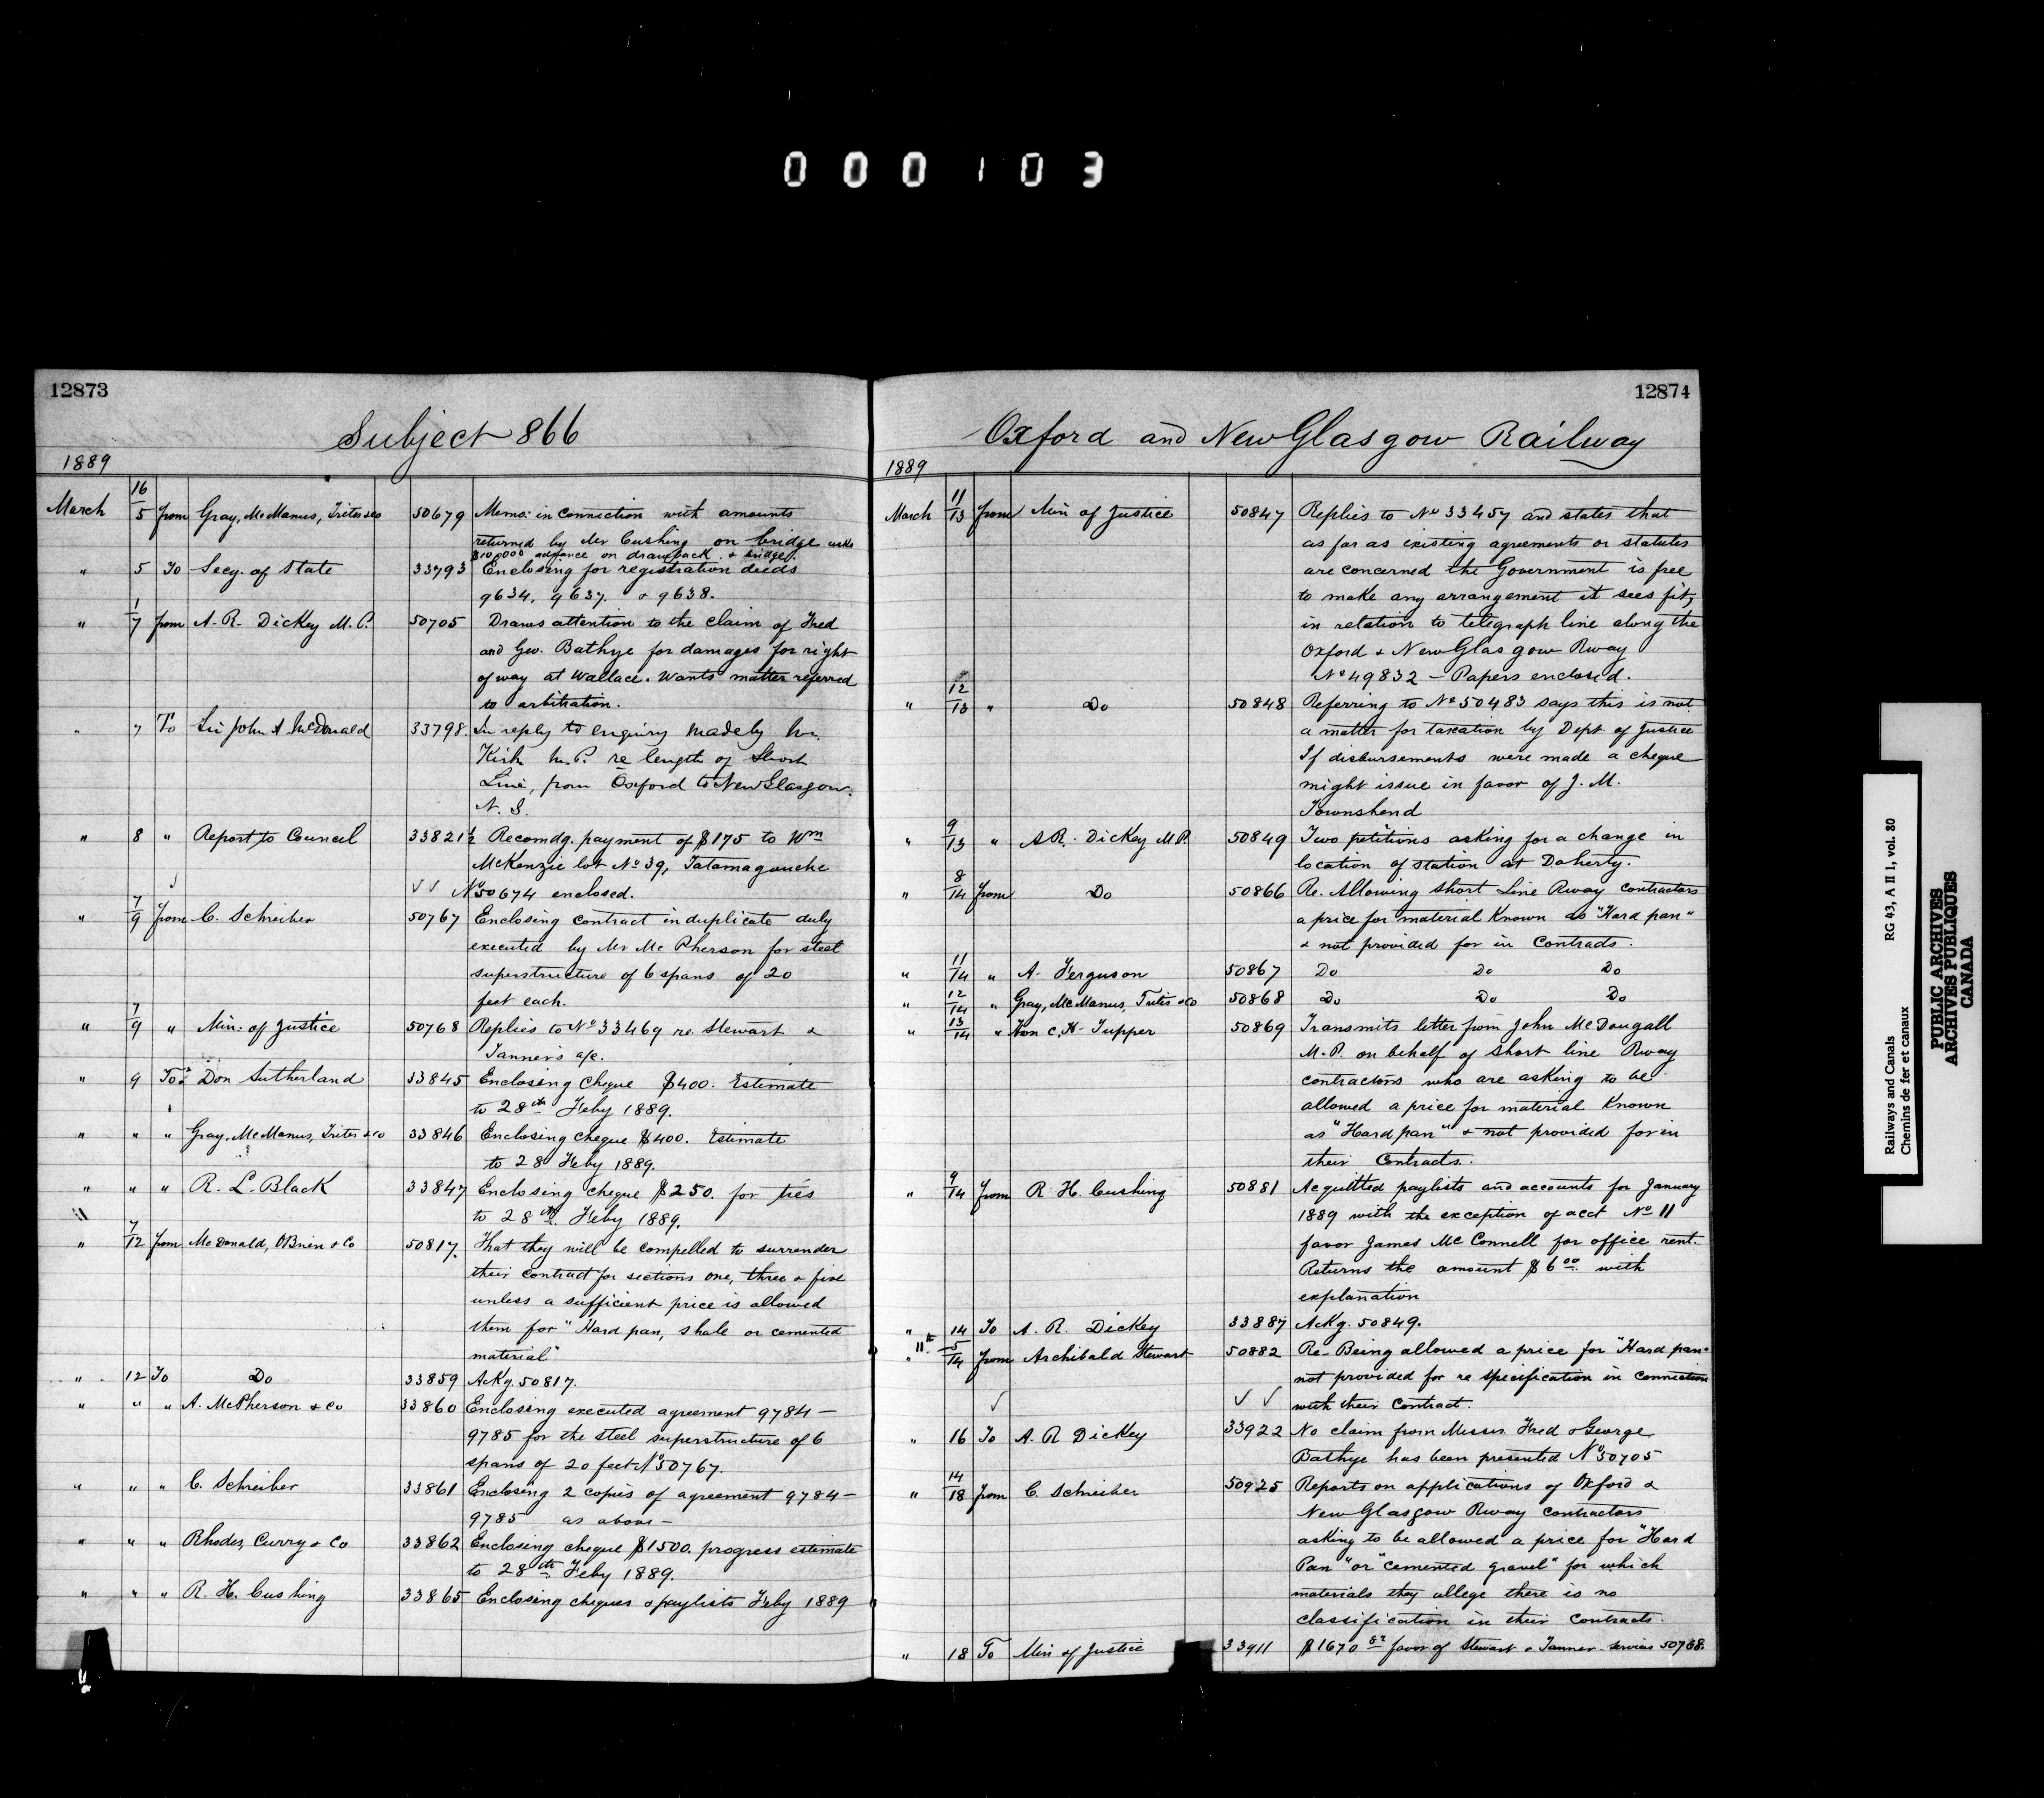 000103
12873
Subject 866
1889
16
March 5 from Gray, McManus, Trites & co 50679 Memo: in connection with amounts
returned by Mr Cushing on bridge asks
advance on drawback & bridge.
" 5 To Secy. of State 33793 Enclosing for registration deeds
9634, 9637 & 9638.
1
" 7 from A. R. Dickey M. P. 50705 Draws attention to the claim of Fred
and Geo. Bathye for damages for right
of way at Wallace. Wants matter referred
to arbitration.
" 7 To Sir John A McDonald 33798. In reply to enquiry made by Mr.
Kirk M. P. re length of Short
Line, from Oxford to New Glasgow.
N. S.
" 8 " Report to Council 33821½ Recomdg. payment of $175 to Wm
McKenzie lot No 39, Tatamagouche
No 50674 enclosed.
7
" 9 from C. Schreiber 50767 Enclosing contract in duplicate duly
executed by Mr McPherson for steel
superstructure of 6 spans of 20
feet each.
7
" 9 " Min. of Justice 50768 Replies to No 33469 re Stewart &
Tanner's a/c.
" 9 To Don Sutherland 33845 Enclosing cheque $400. Estimate
to 28th Feby 1889.
" " " Gray, McManus, Trites & co 33846 Enclosing cheque $400. Estimate
to 28 Feby 1889.
" " " R. L. Black 33847 Enclosing cheque $250. for ties
to 28th Feby 1889.
7
" 12 from McDonald, OBrien & Co 50817. That they will be compelled to surrender
their contract for sections one, three & five
unless a sufficient price is allowed
them for "Hard pan, shale or cemented
material"
" 12 To Do 33859 Ackg. 50817.
" " " A. McPherson & Co 33860 Enclosing executed agreement 9784 —
9785 for the steel superstructure of 6
spans of 20 feet No 50767.
" " " C. Schreiber 33861 Enclosing 2 copies of agreement 9784 —
9785 as above —
" " " Rhodes, Curry & Co 33862 Enclosing cheque $1500. progress estimate
to 28th Feby 1889.
" " " R. H. Cushing 33865 Enclosing cheques & paylists Feby 1889
12874
Oxford and New Glasgow Railway
1889
11
March 13 from Min of Justice 50847 Replies to No 33457 and states that
as far as existing agreements or statutes
are concerned the Government is free
to make any arrangement it sees fit,
in relation to telegraph line along the
Oxford & New Glasgow Rway
No 49832 — Papers enclosed.
12
" 13 " Do 50848 Referring to No 50483 says this is not
a matter for taxation by Dept. of Justice
If disbursements were made a cheque
might issue in favor of J. M.
Townshend
9
" 13 " A R. Dickey M P. 50849 Two petitions asking for a change in
location of station at Doherty.
8
" 14 from Do 50866 Re. Allowing Short Line Rway Contractors
a price for material known as "Hard pan"
& not provided for in Contracts.
11
" 14 " A. Ferguson 50867 Do Do Do
12
" 14 " Gray, McManus, Trites & Co 50868 Do Do Do
13
" 14 " Hon C. H. Tupper 50869 Transmits letter from John McDougall
M. P. on behalf of Short line Rway
contractors who are asking to be
allowed a price for material known
as "Hard pan" & not provided for in
their Contracts.
9
" 14 from R. H. Cushing 50881 Acquitted paylists and accounts for January
1889 with the exception of acct No 11
favor James McConnell for office rent.
Returns the amount $6 00 with
explanation
" 14 To A. R. Dickey 33887 Ackg. 50849.
5
" 14 from Archibald Stewart 50882 Re- Being allowed a price for "Hard pan"
not provided for re specification in connection
with their Contract.
" 16 To A. R Dickey 33922 No claim from Messrs. Fred & George
Bathye has been presented No 50705
14
" 18 from C. Schreiber 50925 Reports on applications of Oxford &
New Glasgow Rway contractors
asking to be allowed a price for "Hard
Pan" or "cemented gravel" for which
materials they allege there is no
classification in their Contracts.
" 18 To Min of Justice 33911 $1670 favor of Stewart & Tanner services 50768.
Railways and Canals RG 43, A II 1, vol. 80
Chemins de fer et canaux
PUBLIC ARCHIVES
ARCHIVES PUBLIQUES
CANADA